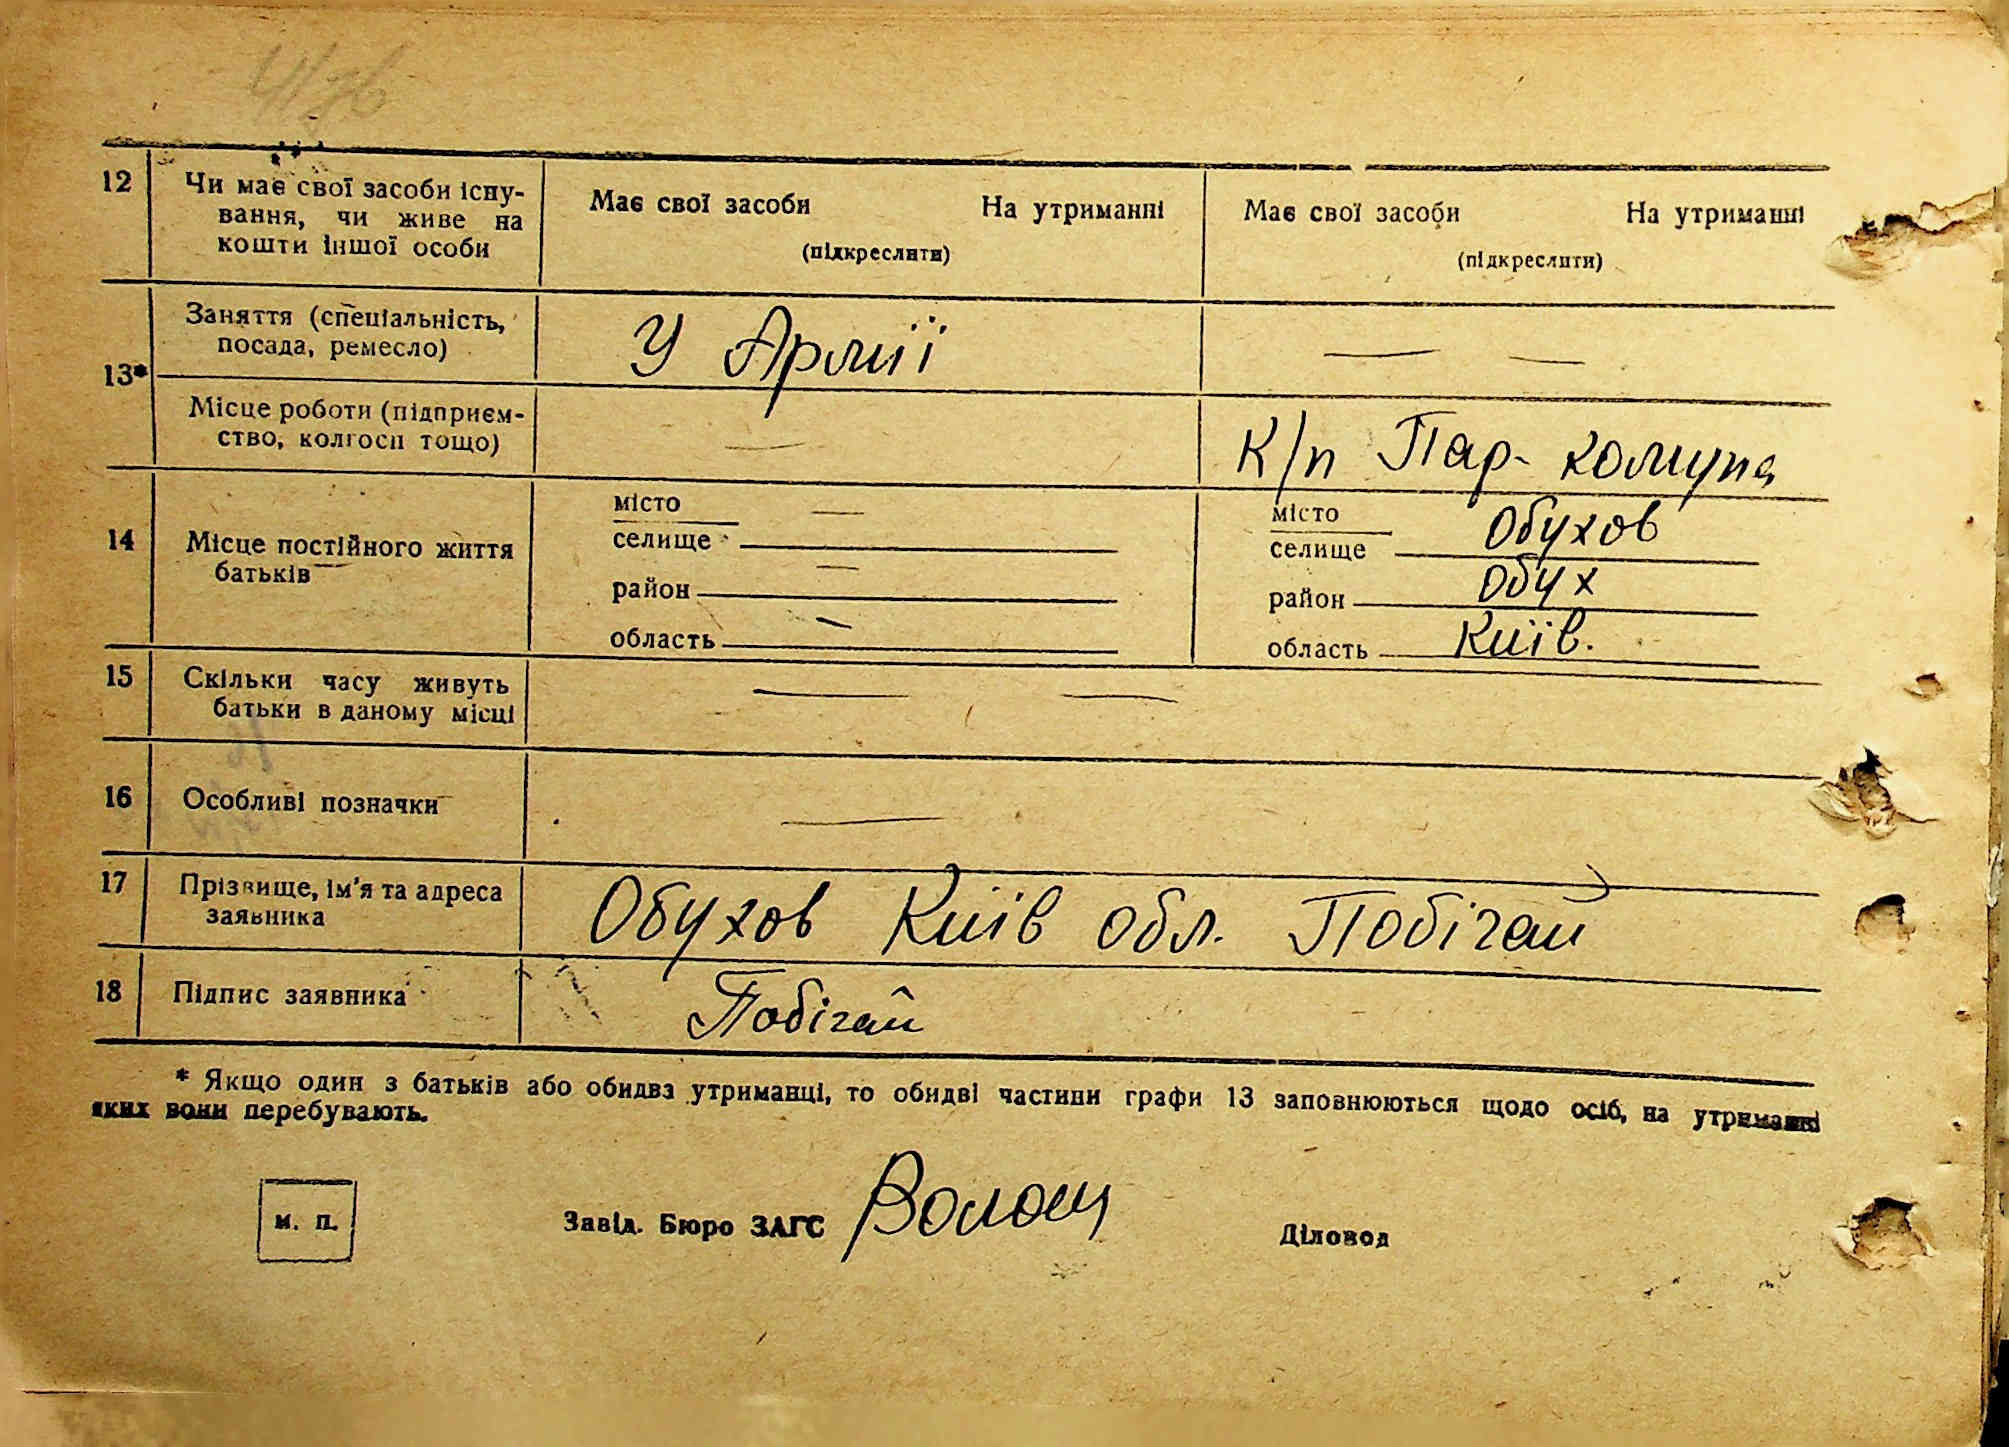 12
Чи має свої засоби існу-
вання, чи живе на
кошти іншої особи
Має свої засоби На утриманні
(підкреслити)
Має свої засоби На утриманні
(підкреслити)
13*
Заняття (спеціальність,
посада, ремесло)
У Армії
— —
Місце роботи (підприєм-
ство, колгосп тощо)
—
К/п Пар. комуна
14
Місце постійного життя
батьків
місто —
селище
район —
область —
місто
селище Обухов
район Обух
область Київ.
15
Скільки часу живуть
батьки в даному місці
— —
16
Особливі позначки
—
17
Прізвище, ім'я та адреса
заявника
Обухов Київ обл. Побігай
18
Підпис заявника
Побігай
* Якщо один з батьків або обидва утриманці, то обидві частини графи 13 заповнюються щодо осіб, на утриманні
яких вони перебувають.
м. п.
Завід. Бюро ЗАГС Волощ
Діловод